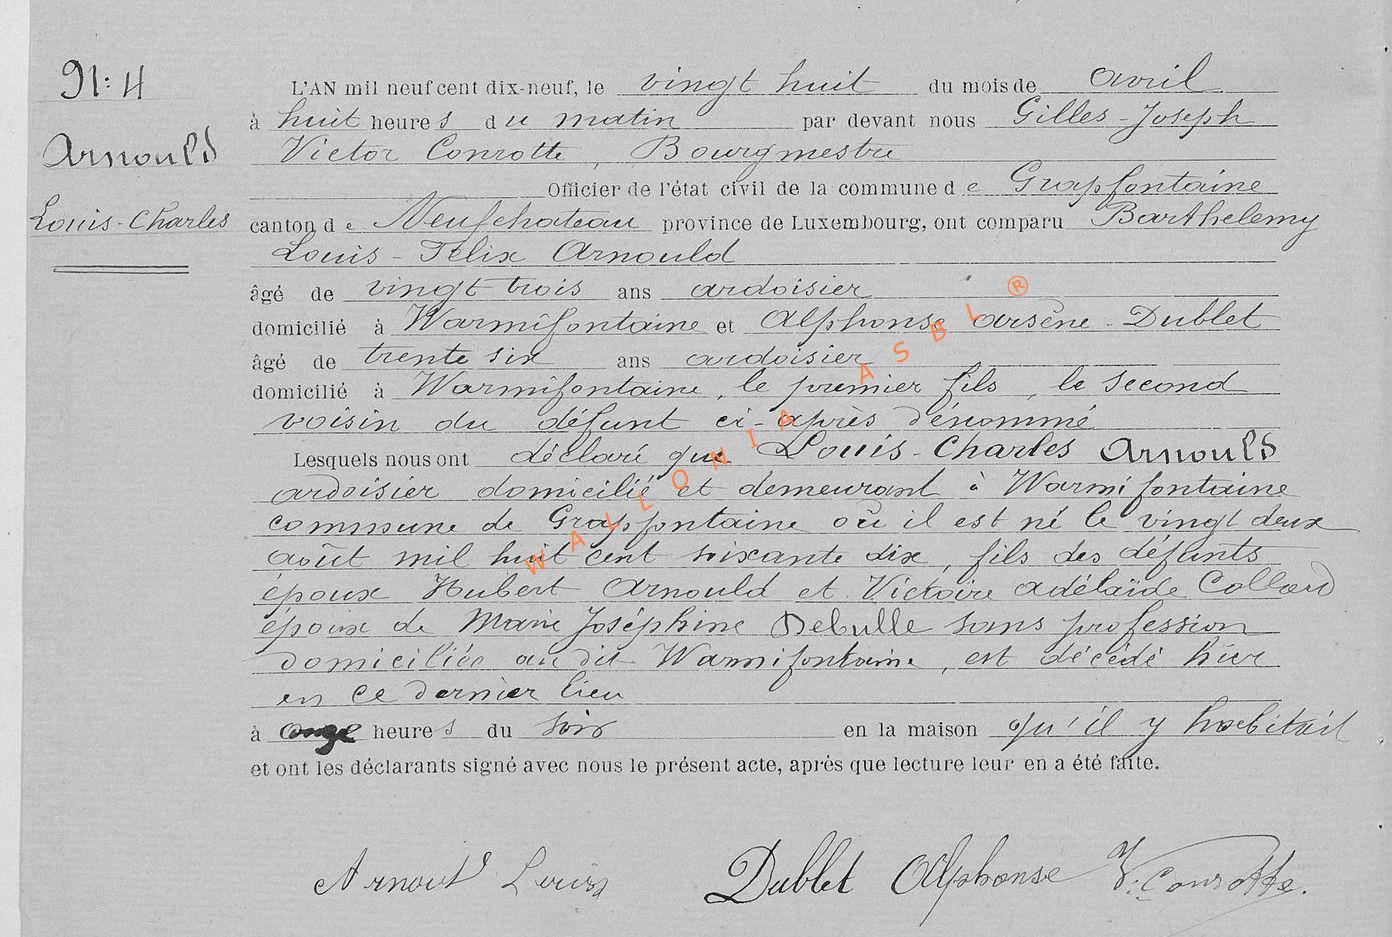 91: 4
Arnould
Louis-Charles
L'AN mil neuf cent dix-neuf, le vingt huit du mois de avril
à huit heures du matin par devant nous Gilles-Joseph
Victor Conrotte, Bourgmestre
Officier de l'état civil de la commune de Grapfontaine
canton de Neufchateau province de Luxembourg, ont comparu Barthelemy
Louis-Félix Arnould
âgé de vingt trois ans ardoisier
domicilié à Warmifontaine et Alphonse arsène-Dublet
âgé de trente six ans ardoisier
domicilié à Warmifontaine, le premier fils, le second
voisin du défunt ci-après dénommé
Lesquels nous ont déclaré que Louis-Charles Arnould
ardoisier domicilié et demeurant à Warmifontaine
commune de Grapfontaine où il est né le vingt deux
août mil huit cent soixante dix, fils des défunts
époux Hubert Arnould et Victoire adélaïde Collard
époux de Marie Joséphine Debulle sans profession
domiciliée au dit Warmifontaine, est décédé hier
en ce dernier lieu
à onze heures du soir en la maison qu'il y habitait
et ont les déclarants signé avec nous le présent acte, après que lecture leur en a été faite.
Arnould Louis Dublet Alphonse V. Conrotte.
WALLONIA ASBL ®